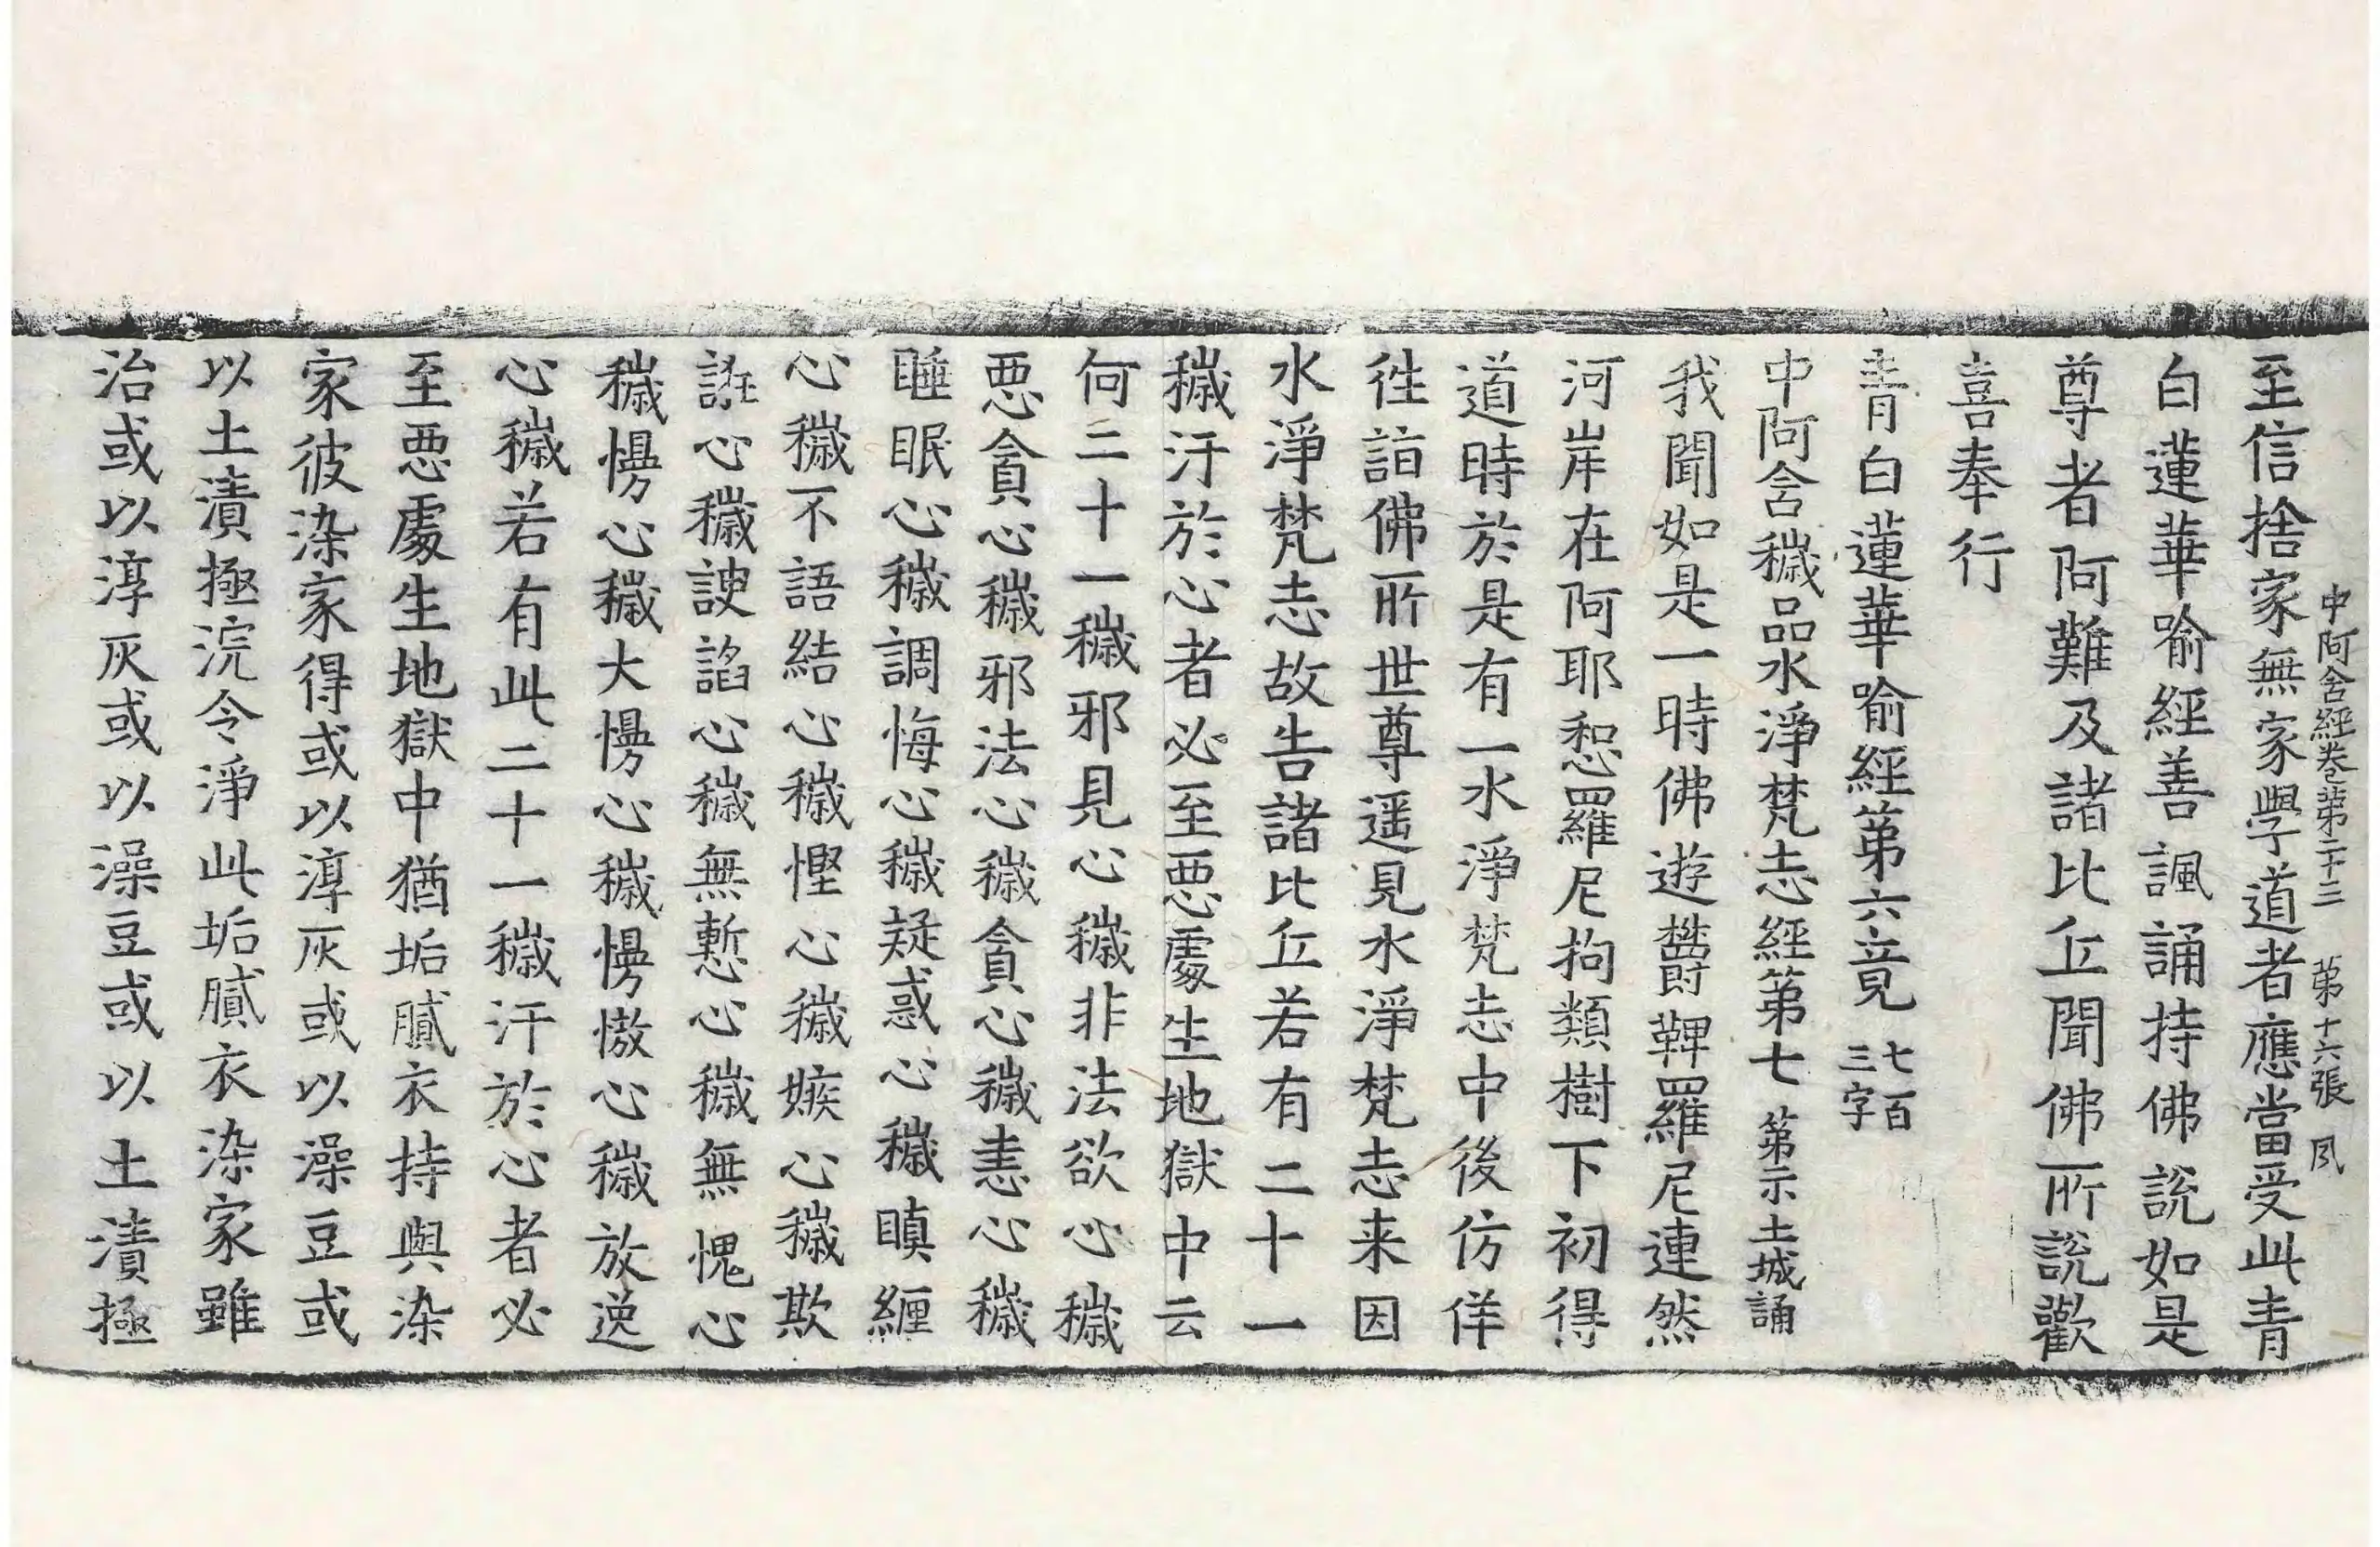 中阿含經卷第二十三　第十六張　夙
至信捨家無家學道者應當受此青
白蓮華喻經善諷誦持佛說如是
尊者阿難及諸比丘聞佛所說歡
喜奉行
青白蓮華喻經第六竟七百三字
中阿含穢品水淨梵志經第七　第示土城誦
我聞如是一時佛遊欝鞞羅尼連然
河岸在阿耶惒羅尼拘類樹下初得
道時於是有一水淨梵志中後仿佯
往詣佛所世尊遥見水淨梵志来因
水淨梵志故告諸比丘若有二十一
穢汙於心者必至惡處生地獄中云
何二十一穢邪見心穢非法欲心穢
惡貪心穢邪法心穢貪心穢恚心穢
睡眠心穢調悔心穢疑惑心穢瞋纏
心穢不語結心穢慳心穢嫉心穢欺
誑心穢諛諂心穢無慙心穢無愧心
穢慢心穢大慢心穢慢慠心穢放逸
心穢若有此二十一穢汙於心者必
至惡處生地獄中猶垢膩衣持與染
家彼染家得或以淳灰或以澡豆或
以土漬極浣令淨此垢膩衣染家雖
治或以淳灰或以澡豆或以土漬極